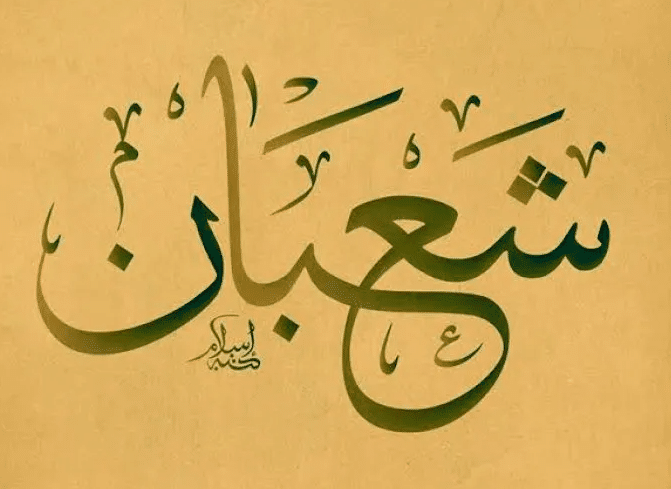 شعبان
كتبه إسلام